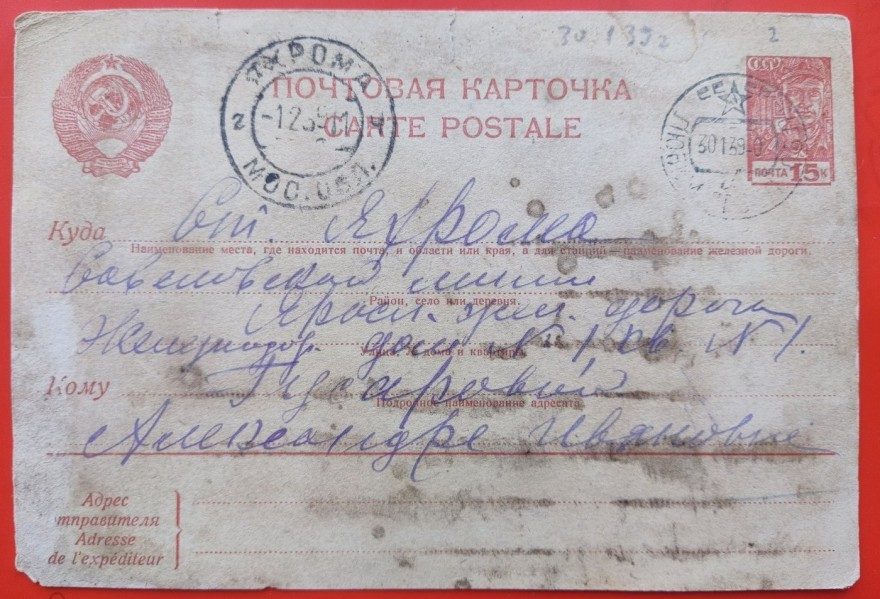 30 1 39 г
2
ЯХРОМА
-1.2.39
МОС. ОБЛ.
ПОЧТОВАЯ КАРТОЧКА
CARTE POSTALE
СССР
30139
ПОЧТА 15 К
Куда ст. Яхрома
Наименование места, где находится почта, и области или края, а для станций—наименование железной дороги.
Савеловской линии
Район, село или деревня.
Яросл. жел. дороги
Железнодор. дом № 1, кв. № 1.
Улица, № дома и квартиры.
Кому
Подробное наименование адресата.
Александре Ивановне
Адрес
тправителя
Adresse
de l'expéditeur